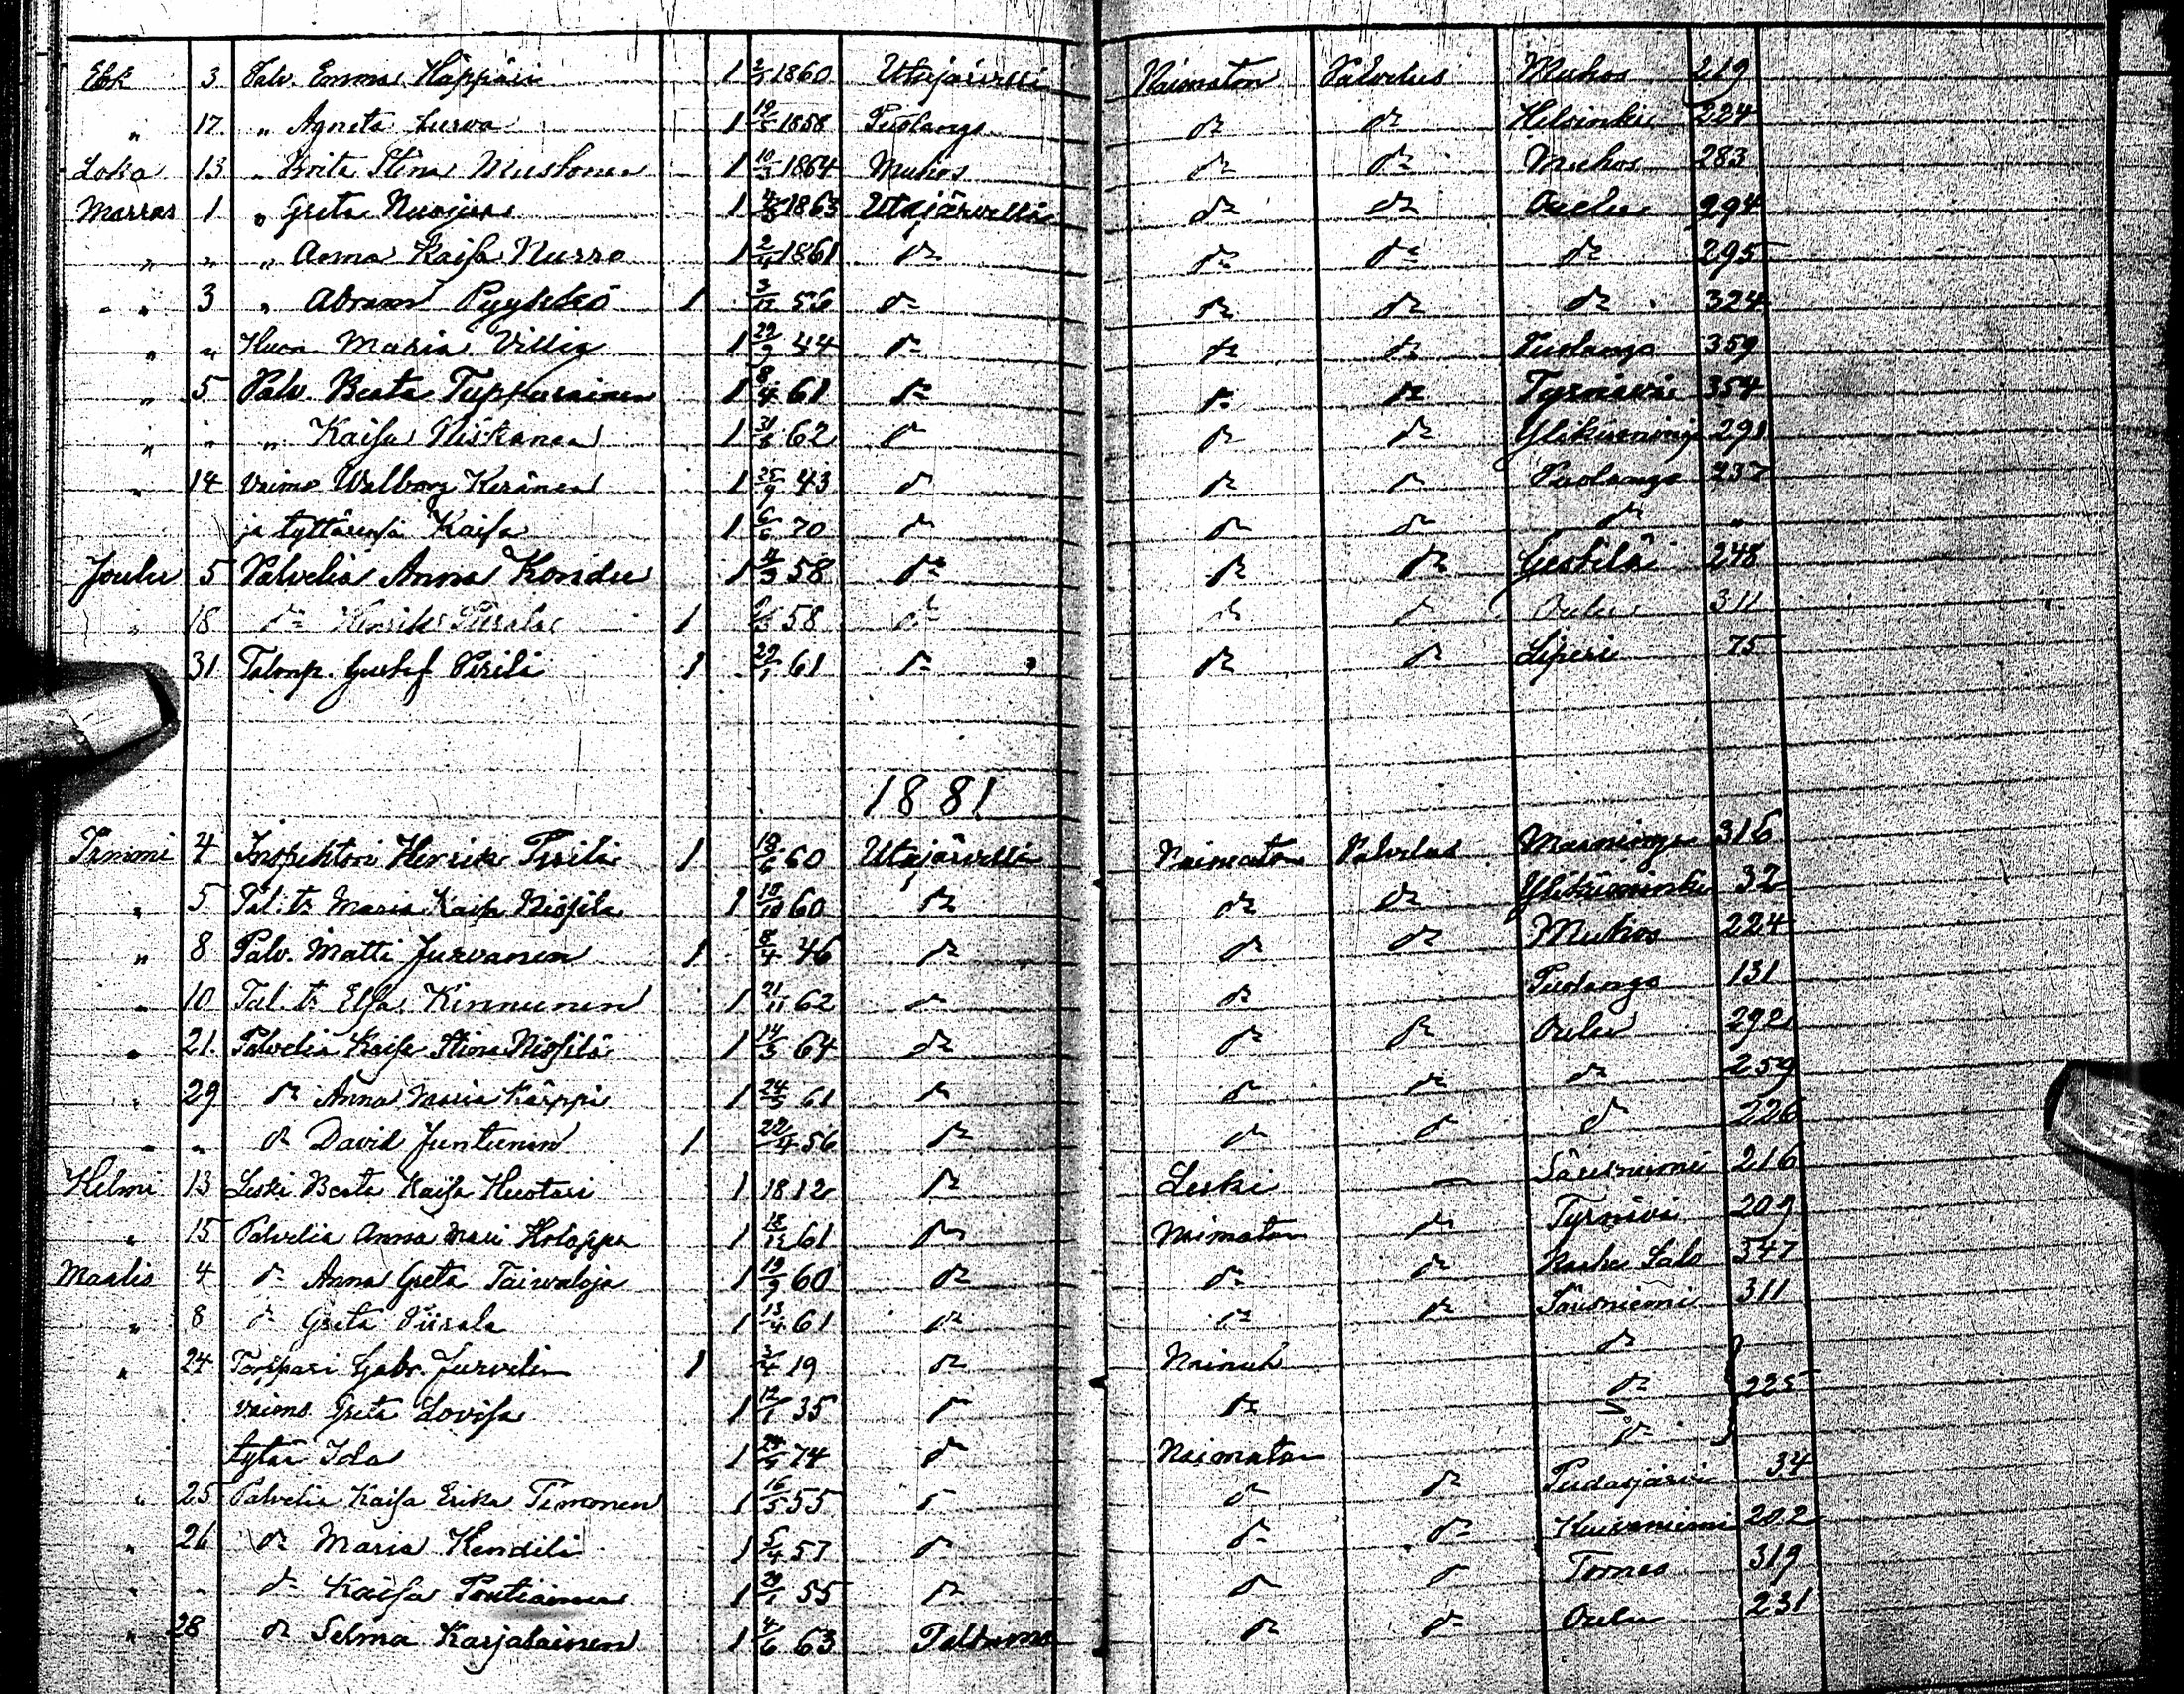 Elok 3 Palv. Emma Käppäin 1 1860 Utajärvellä Naimaton Palvelus Muhos 219
" 17 " Agneta Lurva 1 19/5 1858 Puolanga d:o d:o Helsinki 224
Loka 13 " Brita Stina Mustonen 1 10/3 1864 Muhos d:o d:o Muhos 283
Marras 1 " Greta Nuojua 1 1863 Utajärvellä d:o d:o Oulu 294
" " " Anna Kaisa Nurro 1 2/4 1861 d:o d:o d:o d:o 295
" 3 " Abram Pyykkö 1 3/12 56 d:o d:o d:o d:o 324
" " Maria Villig 1 44 d:o d:o d:o Puolanga 359
" 5 Palv. Beata Tuppurainen 1 8/4 61 d:o d:o d:o Tyrnävä 354
" " " Kaisa Niskanen 1 62 d:o d:o d:o Ylikiiminge 291
" 14 Vaimo Walborg Keränen 1 25/9 43 d:o d:o d:o Puolanga 237
ja tyttärensä Kaisa 1 6/6 70 d:o d:o d:o d:o "
Joulu 5 Palvelia Anna Kondu 1 4/3 58 d:o d:o d:o Gestilä 248
" 18 d:o Henrik Piirala 1 58 d:o d:o d:o Oulu 311
31 Talonp. Gustaf Pirilä 1 61 d:o d:o d:o Liperi 75
1881
Tammi 4 Inspehtori Henrik Pirilä 1 18/6 60 Utajärvellä Naimaton Palvelus 316
" 5 Tal. tr Maria Kaisa Niskilä 1 18/10 60 d:o d:o d:o Ylikiiminki 32
" 8 Palv. Matti Jurvanen 1 8/4 46 d:o d:o d:o Muhos 224
" 10 Tal. tr Elsa Kinnunen 1 21/11 62 d:o d:o Puolanga 131
" 21. Palvelia Kaisa Stina Niskilä 1 14/3 64 d:o d:o d:o Oulu 292
" 29 d:o Anna Maria Käppi 1 24/3 61 d:o d:o d:o d:o 259
" " d:o David Juntunen 1 22/4 56 d:o d:o d:o d:o 226
Helmi 13 Leski Beata Kaisa Huotari 1 1812 d:o Leski — Säresniemi 216
" 15 Palvelia Anna Mari Holappa 1 18/12 61 d:o Naimaton d:o Tyrnävä 209
Maalis 4 d:o Anna Greta Taivaloja 1 19/9 60 d:o d:o d:o Salo 347
" 8 d:o Greta Piirala 1 13/4 61 d:o d:o d:o Säresniemi 311
" 24 Torppari Gabr. Jurvelin 1 3/4 19 d:o Nainut d:o
vaimo Greta Lovisa 1 12/1 35 d:o d:o d:o 225
tytär Ida 1 74 d:o Naimaton d:o
" 25 Palvelia Kaisa Erika Timonen 1 16/5 55 d:o d:o d:o Pudasjärvi 34
" 26 d:o Maria Kendilä 1 5/4 57 d:o d:o d:o Kuivaniemi 202
" " d:o Kaisa Pontiainen 1 55 d:o d:o d:o Tornea 319
" 28 d:o Selma Karjalainen 1 4/6 63 Paltamo d:o d:o Oulu 231